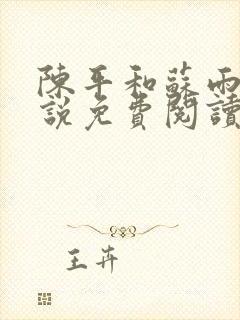 陳平和蘇雨
說免費閱讀
王卉